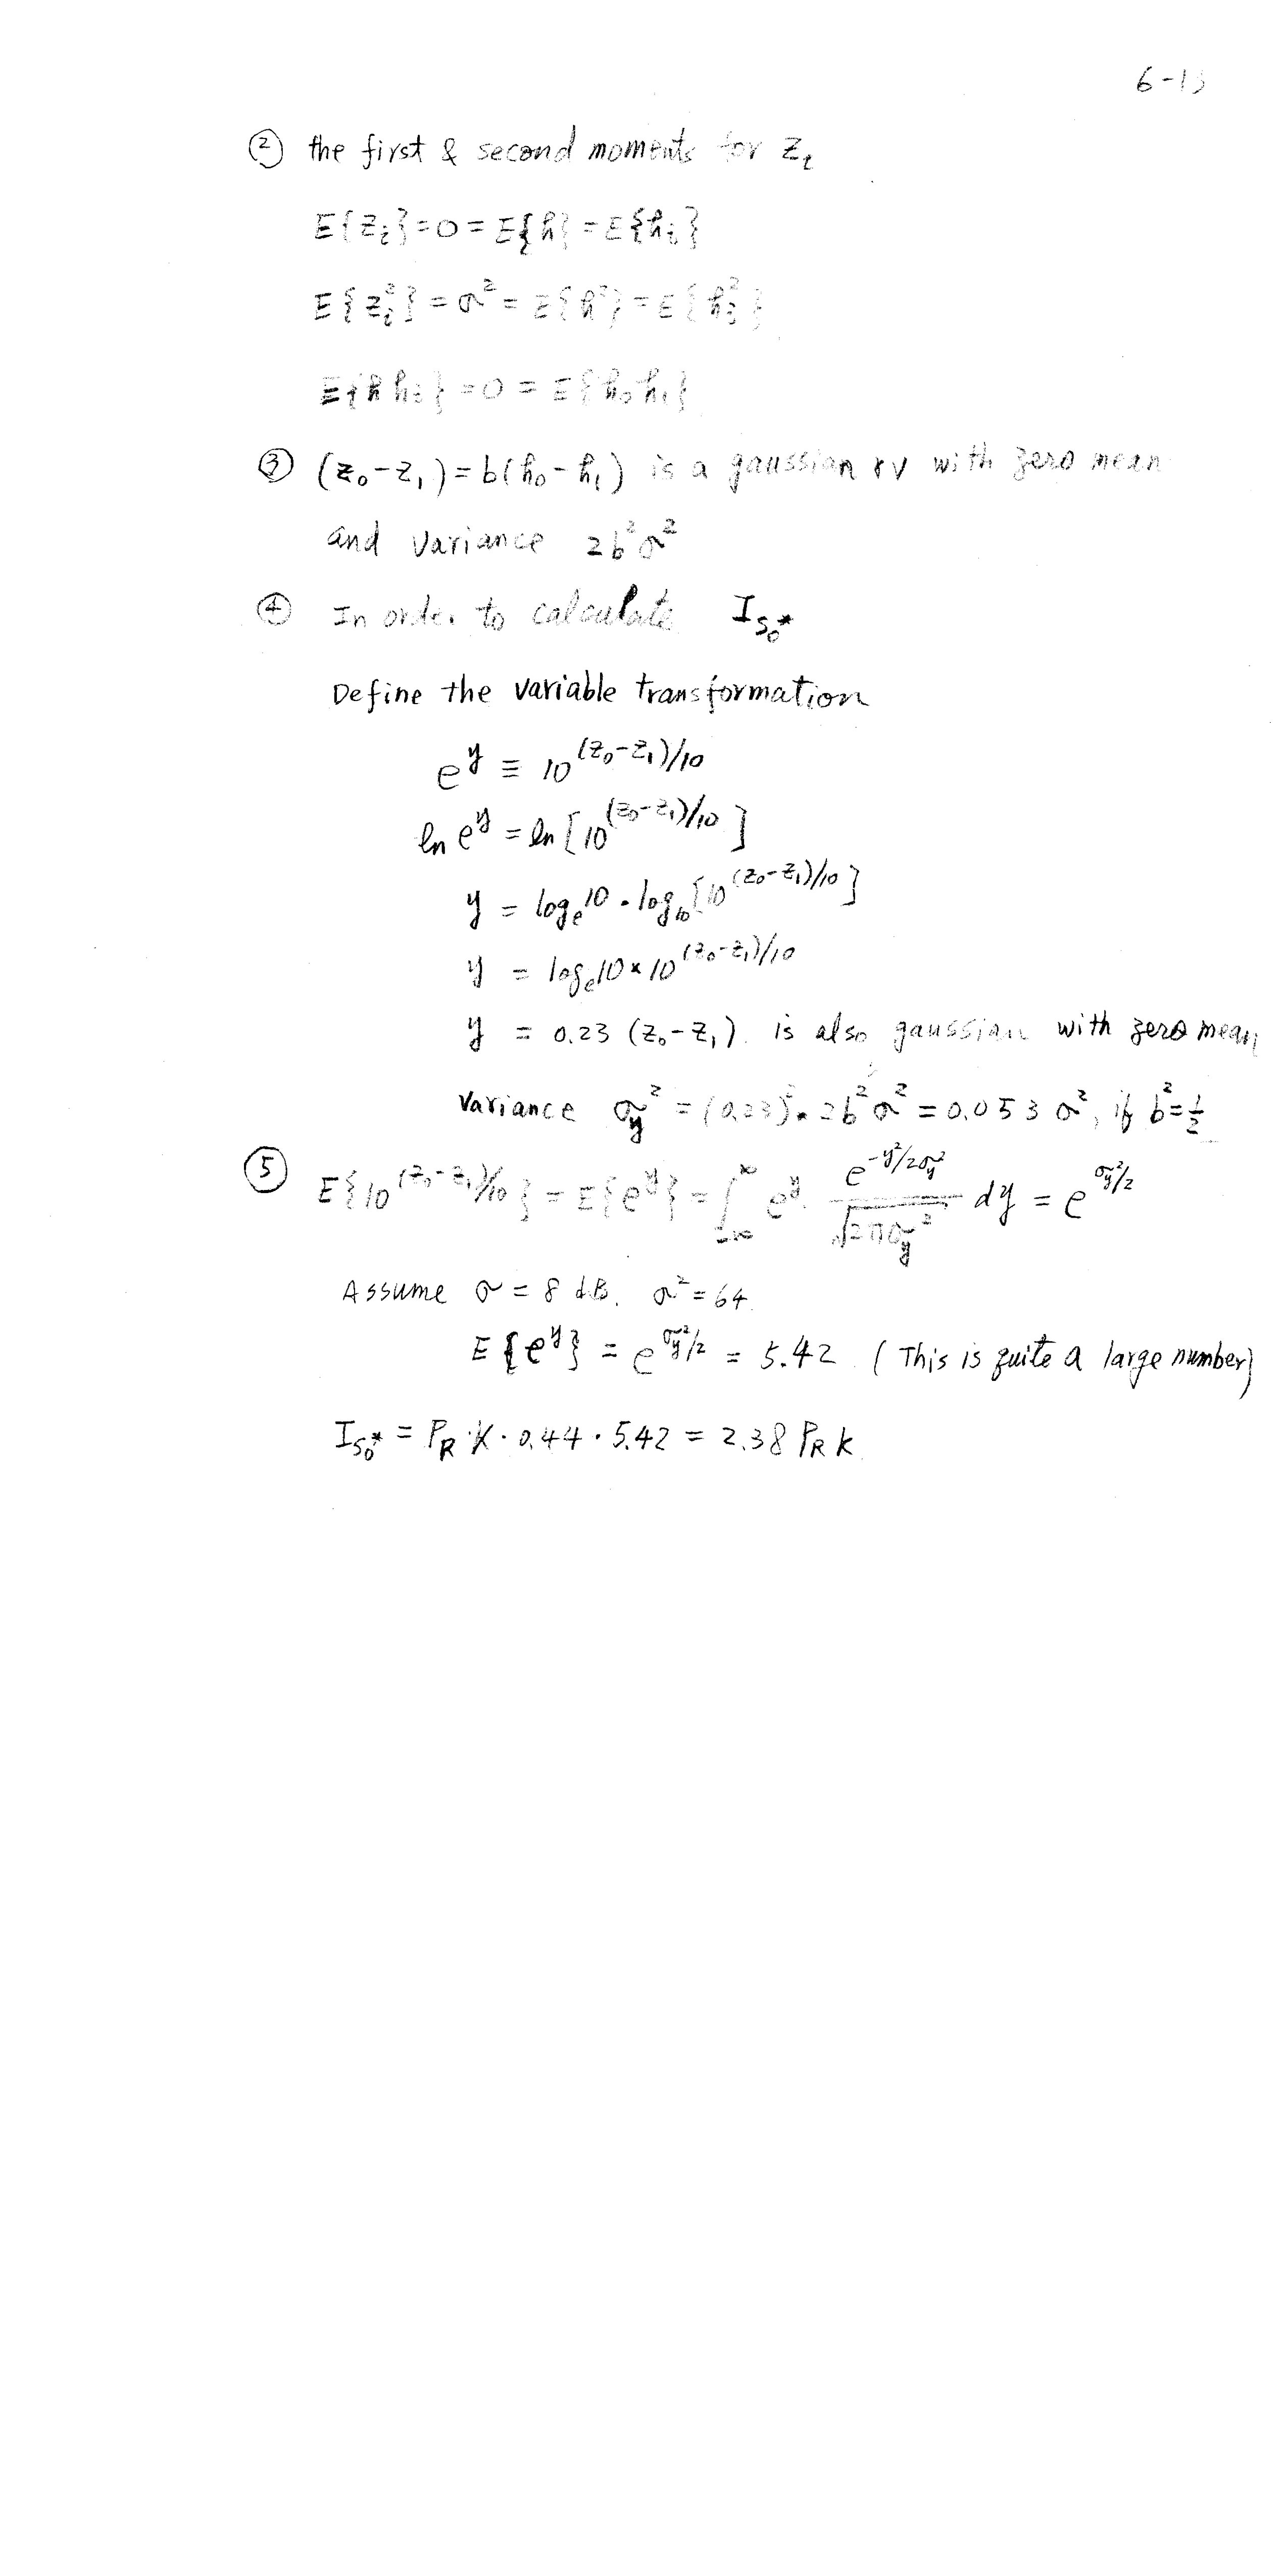 6-13
② the first & second moments for Z_i
E{Z_i} = 0 = E{h} = E{h_i}
E{Z_i^2} = σ^2 = E{h^2} = E{h_i^2}
E{h h_i} = 0 = E{h_0 h_1}
③ (Z_0 - Z_1) = b(h_0 - h_1) is a gaussian rv with zero mean
and variance 2b^2σ^2
④ In order to calculate I_{S_0^*}
Define the variable transformation
e^y ≡ 10^{(Z_0-Z_1)/10}
ln e^y = ln [10^{(Z_0-Z_1)/10}]
y = log_e 10 · log_10 [10^{(Z_0-Z_1)/10}]
y = log_e 10 × 10^{(Z_0-Z_1)/10}
y = 0.23 (Z_0 - Z_1). is also gaussian with zero mean,
Variance σ_y^2 = (0.23)^2 · 2b^2σ^2 = 0.053 σ^2, if b^2 = 1/2
⑤ E{10^{(Z_0-Z_1)/10}} = E{e^y} = ∫_{-∞}^{∞} e^y · e^{-y^2/2σ_y^2} / √(2πσ_y^2) dy = e^{σ_y^2/2}
Assume σ = 8 dB. σ^2 = 64
E{e^y} = e^{σ_y^2/2} = 5.42 (This is quite a large number)
I_{S_0^*} = P_R · K · 0.44 · 5.42 = 2.38 P_R K